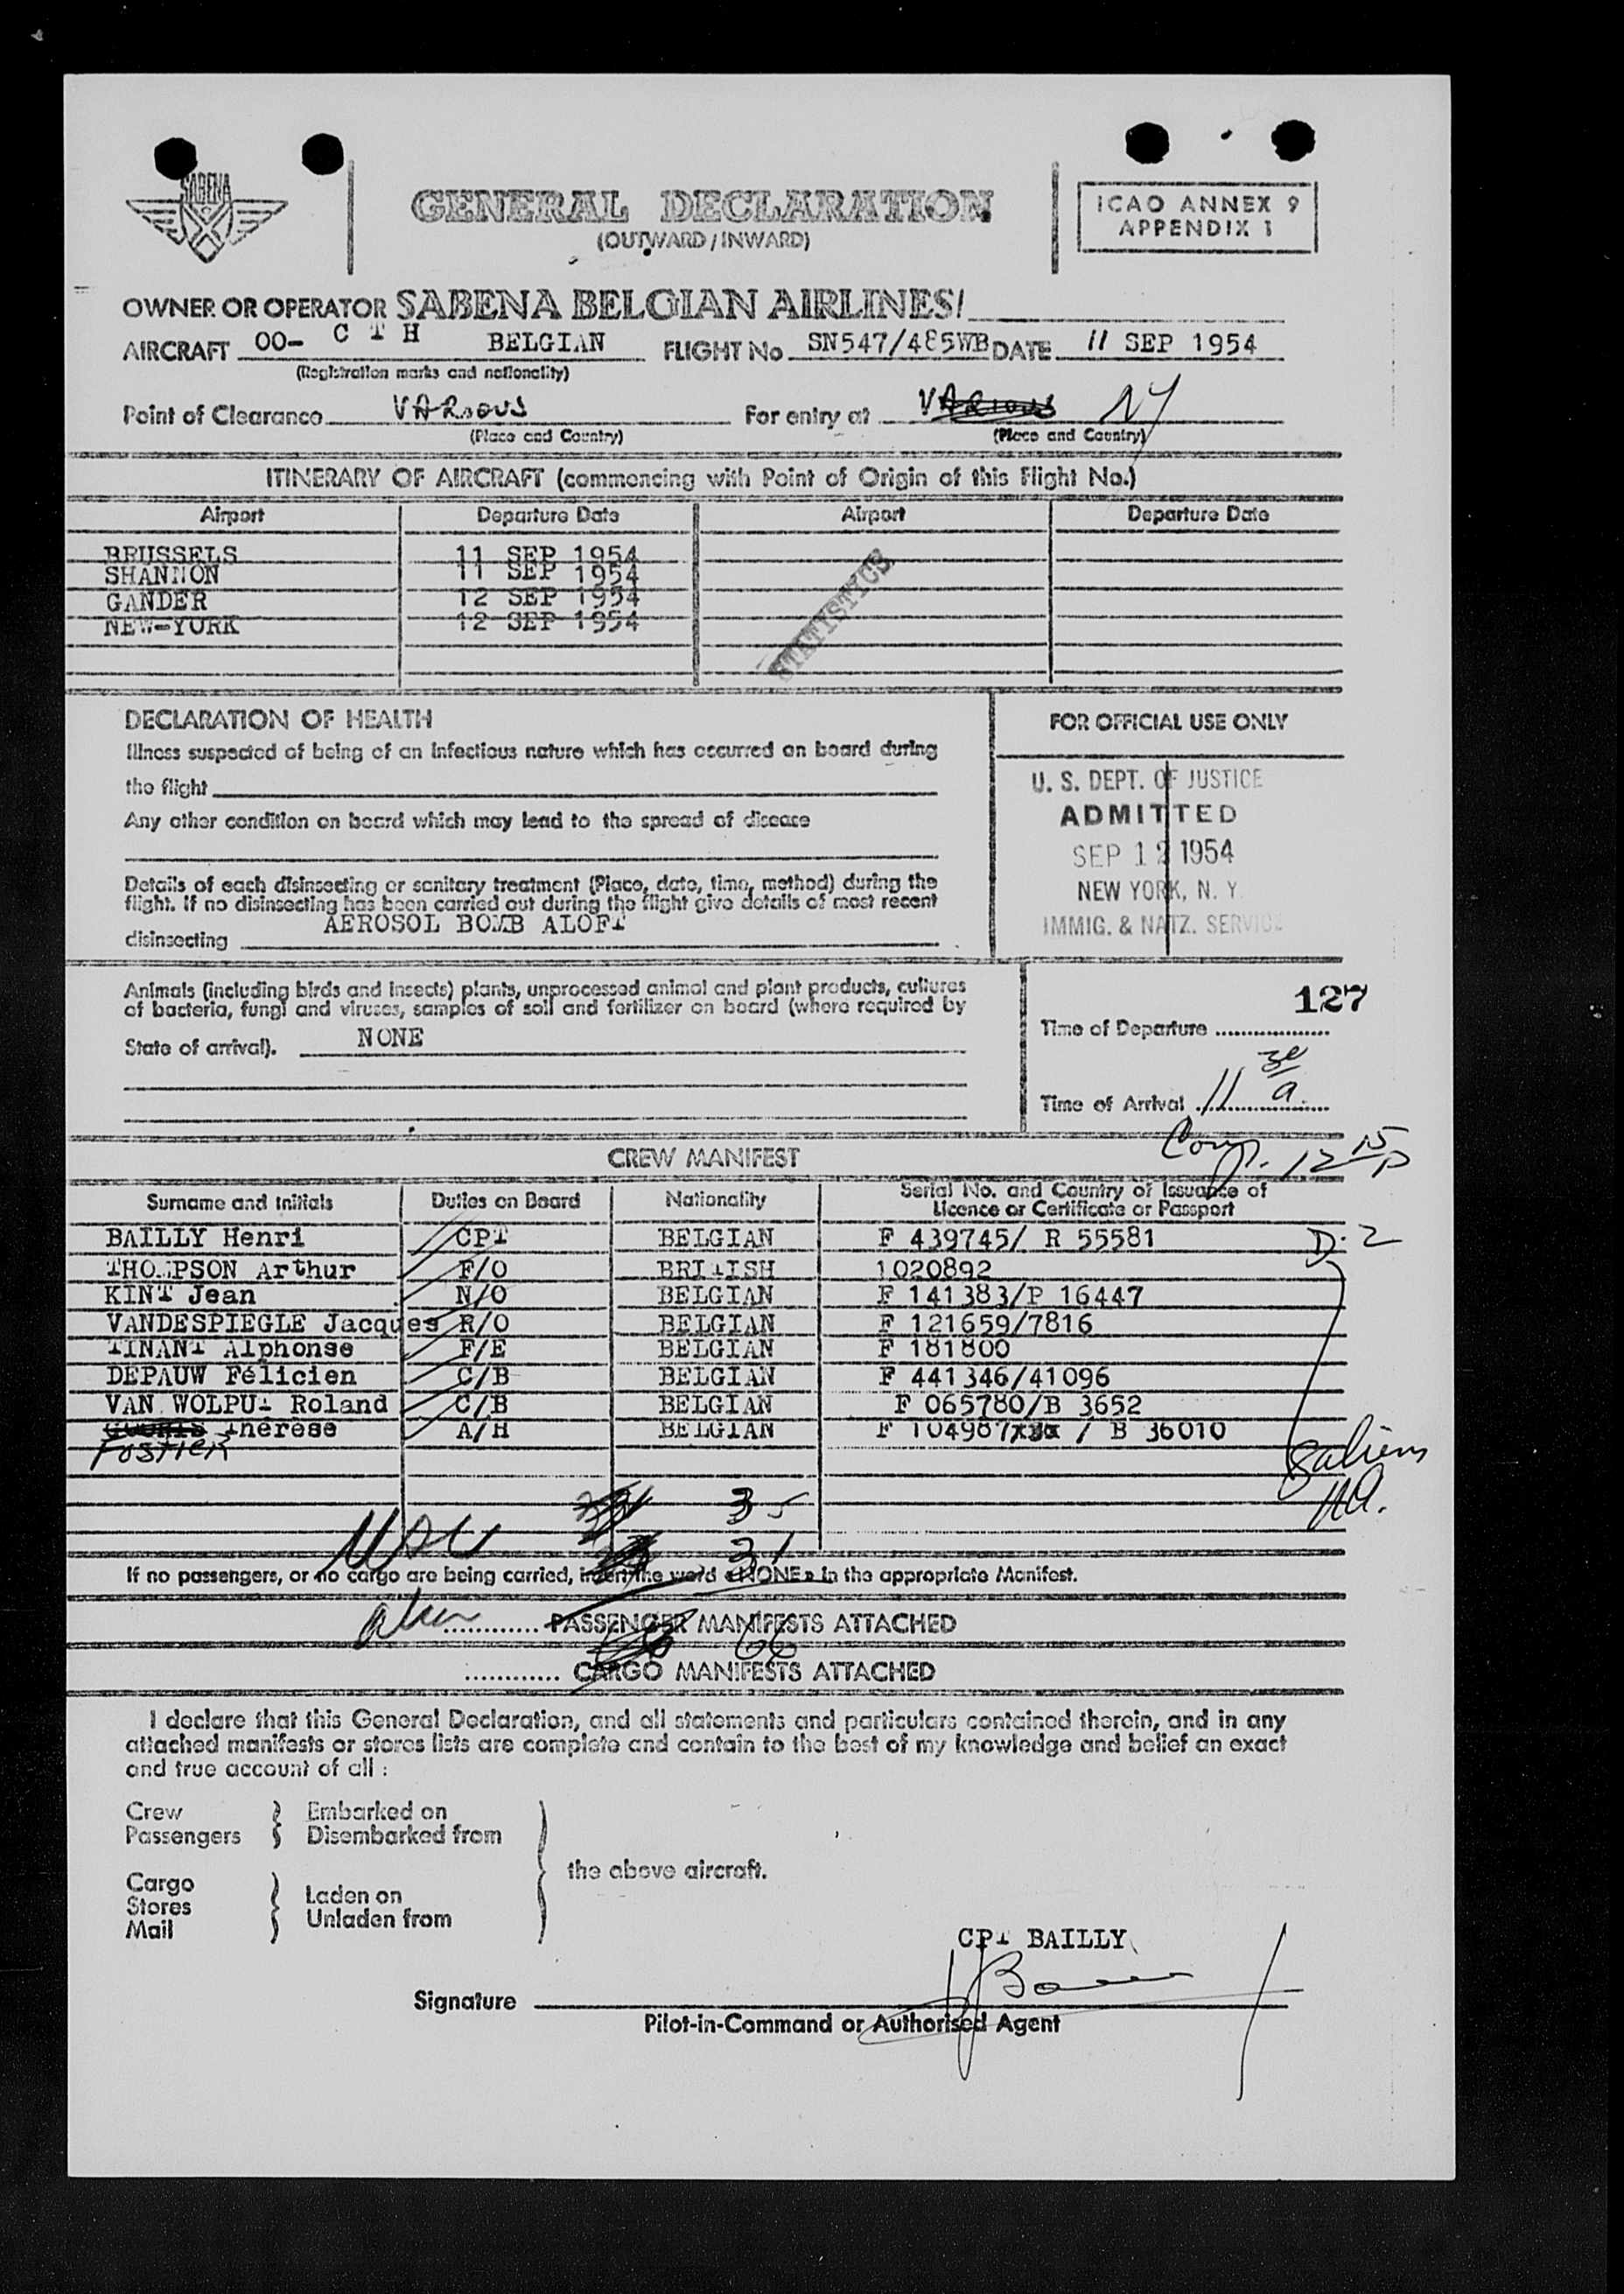 SABENA
GENERAL DECLARATION
(OUTWARD / INWARD)
ICAO ANNEX 9
APPENDIX 1
OWNER OR OPERATOR SABENA BELGIAN AIRLINES/
AIRCRAFT OO- C T H BELGIAN FLIGHT No SN547/485WB DATE 11 SEP 1954
(Registration marks and nationality)
Point of Clearance VARIOUS For entry at VARIOUS NY
(Place and Country) (Place and Country)
ITINERARY OF AIRCRAFT (commencing with Point of Origin of this Flight No.)
Airport Departure Date Airport Departure Date
BRUSSELS 11 SEP 1954
SHANNON 11 SEP 1954
GANDER 12 SEP 1954
NEW-YORK 12 SEP 1954
STATISTICS
DECLARATION OF HEALTH
Illness suspected of being of an infectious nature which has occurred on board during
the flight
Any other condition on board which may lead to the spread of disease
Details of each disinsecting or sanitary treatment (Place, date, time, method) during the
flight. If no disinsecting has been carried out during the flight give details of most recent
disinsecting AEROSOL BOMB ALOFT
FOR OFFICIAL USE ONLY
U. S. DEPT. OF JUSTICE
ADMITTED
SEP 12 1954
NEW YORK, N. Y.
IMMIG. & NATZ. SERVICE
Animals (including birds and insects) plants, unprocessed animal and plant products, cultures
of bacteria, fungi and viruses, samples of soil and fertilizer on board (where required by
State of arrival). NONE
127
Time of Departure
Time of Arrival 11 30 a.
Comp. 12 15 p
CREW MANIFEST
Surname and Initials Duties on Board Nationality Serial No. and Country of Issuance of
Licence or Certificate or Passport
BAILLY Henri CPT BELGIAN F 439745/ R 55581 D-2
THOMPSON Arthur F/O BRITISH 1020892
KINT Jean N/O BELGIAN F 141383/P 16447
VANDESPIEGLE Jacques R/O BELGIAN F 121659/7816
TINANT Alphonse F/E BELGIAN F 181800
DEPAUW Félicien C/B BELGIAN F 441346/41096
VAN WOLPUT Roland C/B BELGIAN F 065780/B 3652
Thérèse A/H BELGIAN F 104987xxx / B 36010
FOSTIER
35
USC 31
If no passengers, or no cargo are being carried, insert the word «NONE» in the appropriate Manifest.
alien ............ PASSENGER MANIFESTS ATTACHED
66
............ CARGO MANIFESTS ATTACHED
I declare that this General Declaration, and all statements and particulars contained therein, and in any
attached manifests or stores lists are complete and contain to the best of my knowledge and belief an exact
and true account of all :
Crew Embarked on
Passengers Disembarked from
the above aircraft.
Cargo Laden on
Stores Unladen from
Mail
CPT BAILLY
Signature
Pilot-in-Command or Authorised Agent